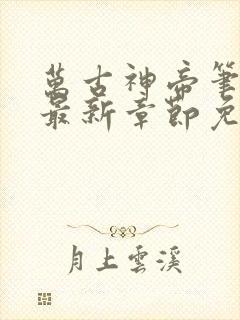 萬古神帝筆
最新章節免
月上雲溪